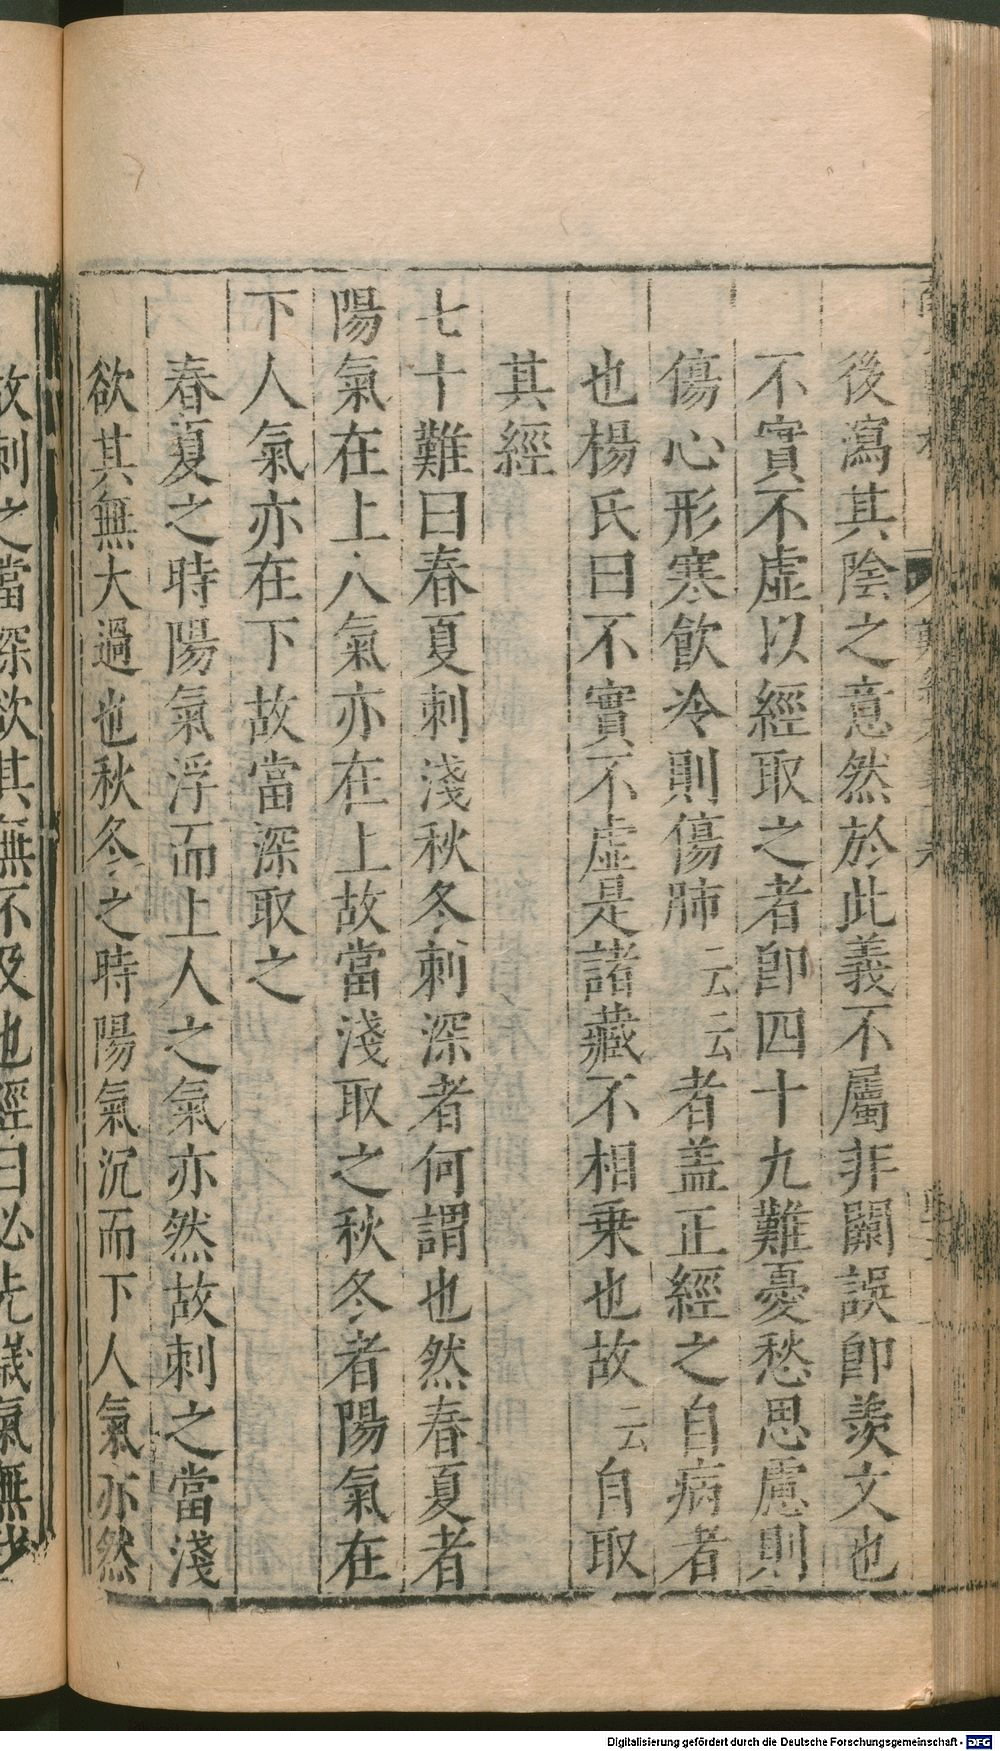 後瀉其陰之意然於此義不屬非闕誤卽羨文也
不實不虛以經取之者卽四十九難憂愁思慮則
傷心形寒飮冷則傷肺云云者盖正經之自病者
也楊氏曰不實不虛是諸藏不相乗也故云自取
其經
七十難曰春夏刺淺秋冬刺深者何謂也然春夏者
陽氣在上人氣亦在上故當淺取之秋冬者陽氣在
下人氣亦在下故當深取之
春夏之時陽氣浮而上人之氣亦然故刺之當淺
欲其無大過也秋冬之時陽氣沉而下人氣亦然
故刺之當深欲其無不及也經曰必先歲氣無
Digitalisierung gefördert durch die Deutsche Forschungsgemeinschaft - DFG